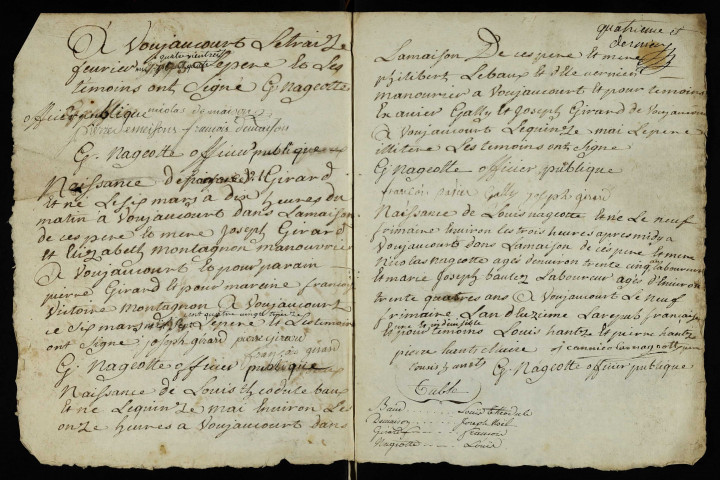 A Voujaucourt Letraize
fevrier Lepere Et Les
temoins ont Signé G Nageotte
officier publique nicolas demaison
pierre demaison francois demaison
G. Nageotte officier publique
Naissance de Girard
Et né Le six mars a dix heures du
matin a Voujaucourt dans Lamaison
de ces pere Et mere Joseph Girard
Et Elizabeth montagnon manouvrier
a Voujaucourt Et pour parain
pierre Girard Et pour marene françois
Victoire montagnon a Voujaucourt
ce six mars Lepere Et Les temoins
ont Signé joseph girard pierre girard
françois girard
G. Nageotte officier publique
Naissance de Louis theodule baux
Et né Lequinze mai Environ Les
onze heures a Voujaucourt dans
quatrieme et
dernier
Lamaison De ces pere Et mere
philibert Lebaux Et
manouvrier a Voujaucourt Et pour temoins
Gally Et Joseph Girard de Voujaucourt
a Voujaucourt Lequinze mai Lepere
illitere Les temoins ont Signé
G. Nageotte officier publique
gally joseph girard
Naissance de Louis nageotte Et né Le neuf
frimaire Environ Les trois heures apres midy a
Voujaucourt dans Lamaison de ces pere Et mere
Nicolas Nageotte agés denviron trente cinq ans Laboureur
Et marie Joseph bautez Laboureur agés d'Environ
trente quatres ans a Voujaucourt Le neuf
frimaire Lan duzieme Larepub française
une Et indivisible
Et pour temoins Louis hantz Et pierre hantz
pierre hantz
Louis hantz G. Nageotte officier publique
Table
Baud Louis theodule
Demaison Joseph
Girard francois
Nageotte Louis